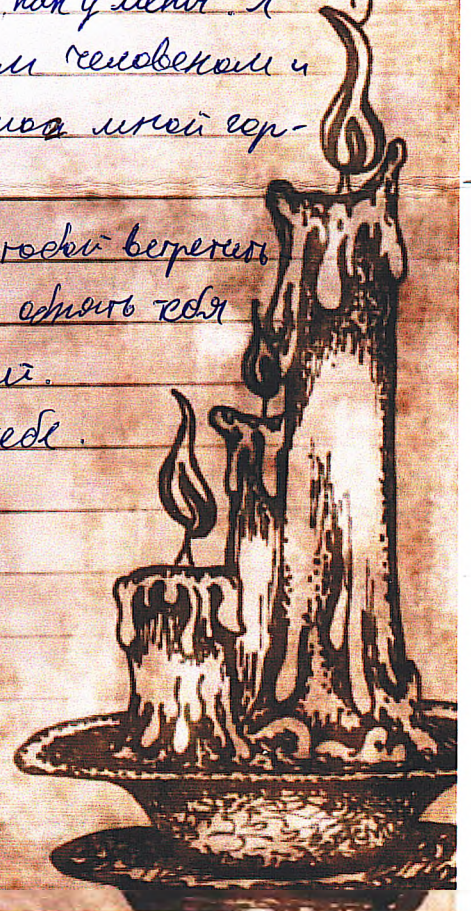 как у меня. Я
м человеком и
мной гор-
тобой встретить
обнять тебя
й.
ебе.